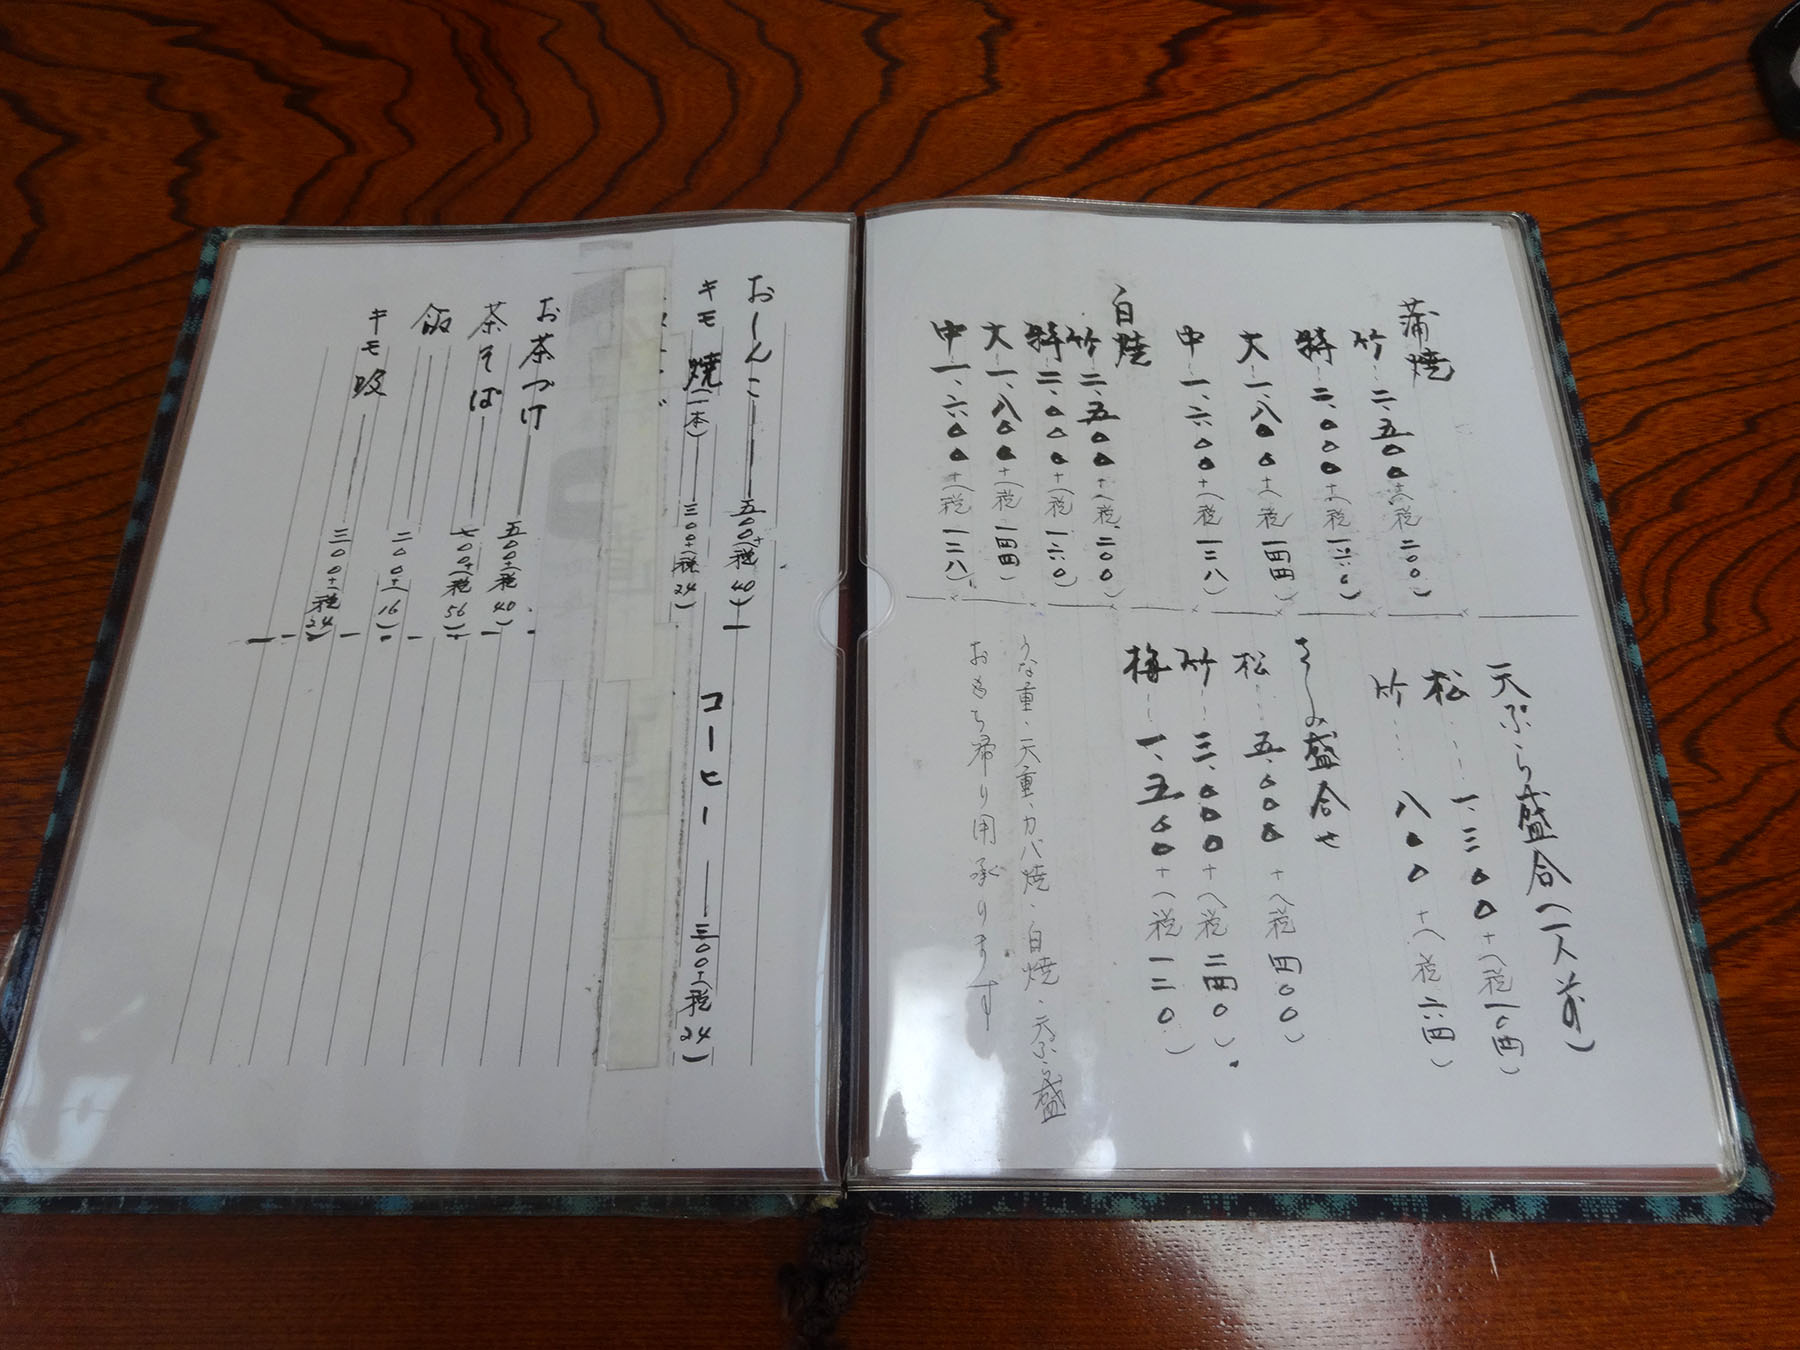 蒲焼
竹 二、五〇〇+(税二〇〇)
特 二、〇〇〇+(税一六〇)
大 一、八〇〇+(税一四四)
中 一、六〇〇+(税一二八)
白焼
竹 二、五〇〇+(税二〇〇)
特 二、〇〇〇+(税一六〇)
大 一、八〇〇+(税一四四)
中 一、六〇〇+(税一二八)
天ぷら盛合(一人前)
松 一、三〇〇+(税一〇四)
竹 八〇〇+(税六四)
さしみ盛合せ
松 五、〇〇〇+(税四〇〇)
竹 三、〇〇〇+(税二四〇)
梅 一、五〇〇+(税一二〇)
うな重、天重、カバ焼、白焼、天ぷら盛
おもち帰り用承ります
おしんこ 五〇〇+(税40)
キモ焼(一本) 三〇〇+(税24)
コーヒー 三〇〇+(税24)
お茶づけ 五〇〇+(税40)
茶そば 七〇〇+(税56)
飯 二〇〇+(16)
キモ吸 三〇〇+(税24)